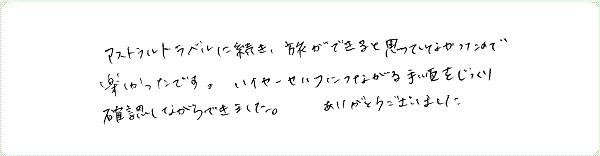 アストラルトラベルに続き、旅ができると思っていなかったので
楽しかったです。ハイヤーセルフにつながる手順をじっくり
確認しながらできました。 ありがとうございました